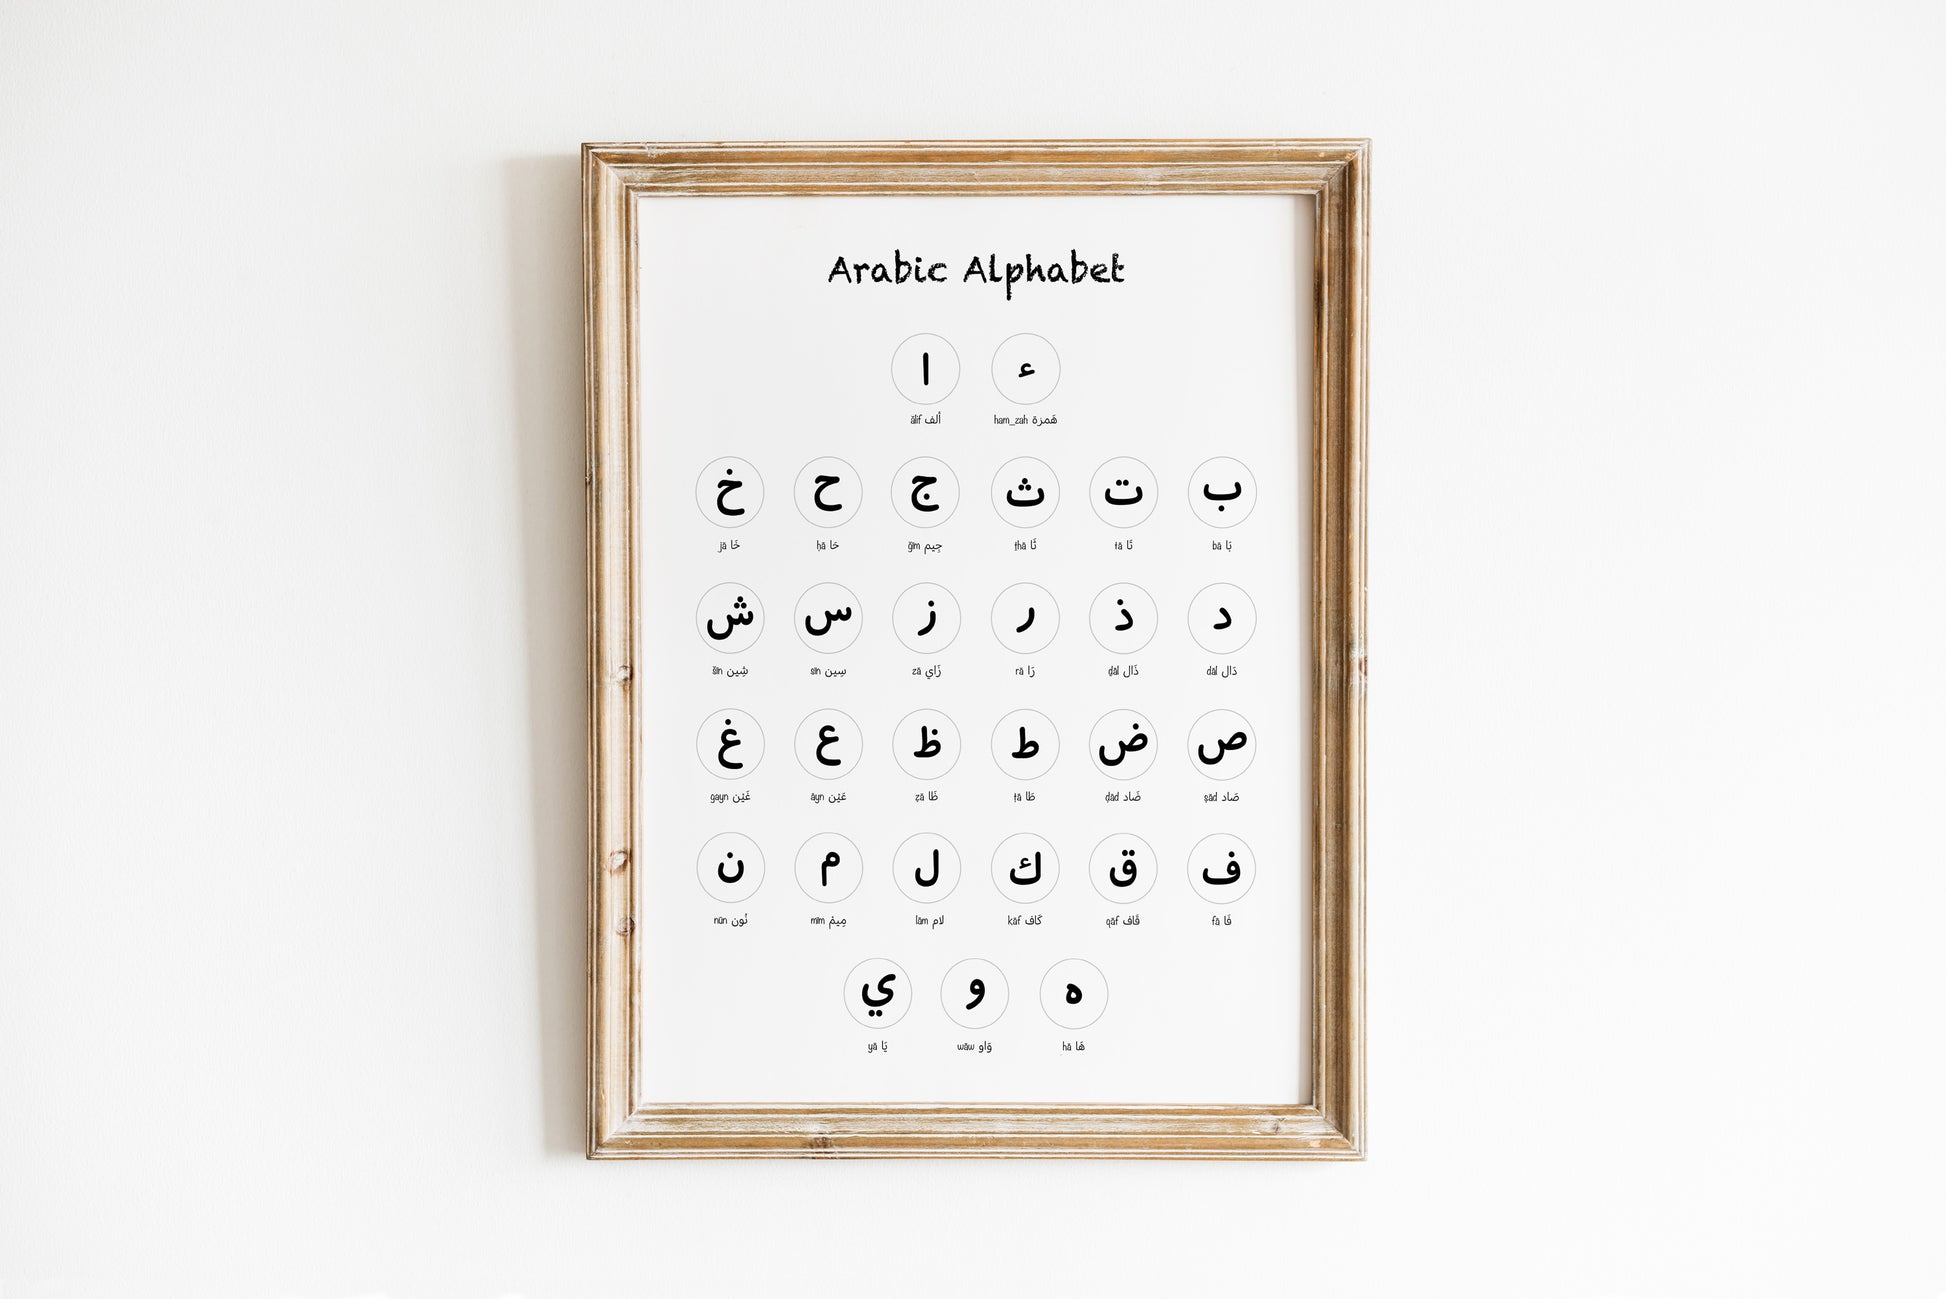 Arabic Alphabet
ء ا
ham_zah هَمزة ālif ألف
ب ت ث ج ح خ
bā بَا tā تَا ṯhā ثَا ǧīm جِيم ḥā حَا jā خَا
د ذ ر ز س ش
dāl دَال ḏāl ذَال rā رَا zā زَاي sīn سِين šīn شِين
ص ض ط ظ ع غ
ṣād صَاد ḍād ضَاد ṭā طَا ẓā ظَا āyn عَيْن gayn غَيْن
ف ق ك ل م ن
fā فَا qāf قَاف kāf كَاف lām لام mīm مِيمْ nūn نُون
ه و ي
hā هَا wāw وَاو yā يَا